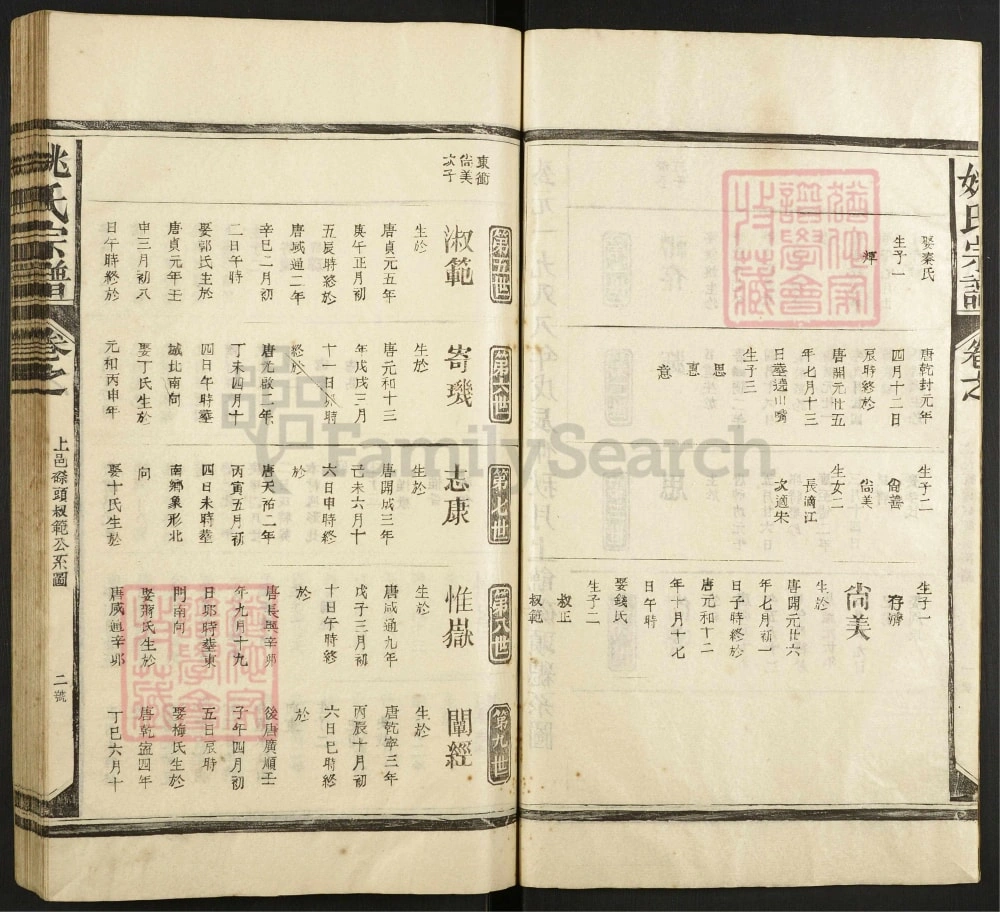 姚氏宗譜
卷之
娶秦氏
生子一
輝
唐乾封元年
四月十二日
辰時終於
唐開元廿五
年七月十三
日葬遶山嘴
生子三
思
惠
意
生子二
尙善
尙美
生女二
長適江
次適朱
生子一
存濟
尙美
生於
唐開元廿六
年七月初一
日子時終於
唐元和十二
年十月十七
日午時
娶錢氏
生子二
叔正
叔範
東衝
尙美
次子
第五世
淑範
生於
唐貞元五年
庚午正月初
五辰時終於
唐咸通二年
辛巳二月初
二日午時
娶郭氏生於
唐貞元年壬
申三月初八
日午時終於
第六世
寄璣
生於
唐元和十三
年戊戌三月
十一日卯時
終於
唐光啟二年
丁未四月十
四日午時葬
城北南向
娶丁氏生於
元和丙申年
第七世
志康
生於
唐開成三年
己未六月十
六日申時終
於
唐天祐二年
丙寅五月初
四日未時葬
南鄉象形北
向
娶十氏生於
第八世
惟嶽
生於
唐咸通九年
戊子三月初
十日午時終
於
唐長興辛卯
年九月十九
日卯時葬東
門南向
娶齊氏生於
唐咸通辛卯
第九世
閳經
生於
唐乾寧三年
丙辰十月初
六日巳時終
於
後唐廣順壬
子年四月初
五日辰時
娶梅氏生於
唐乾寧四年
丁巳六月十
姚氏宗譜
卷之
上邑磜頭叔範公系圖
二號
FamilySearch